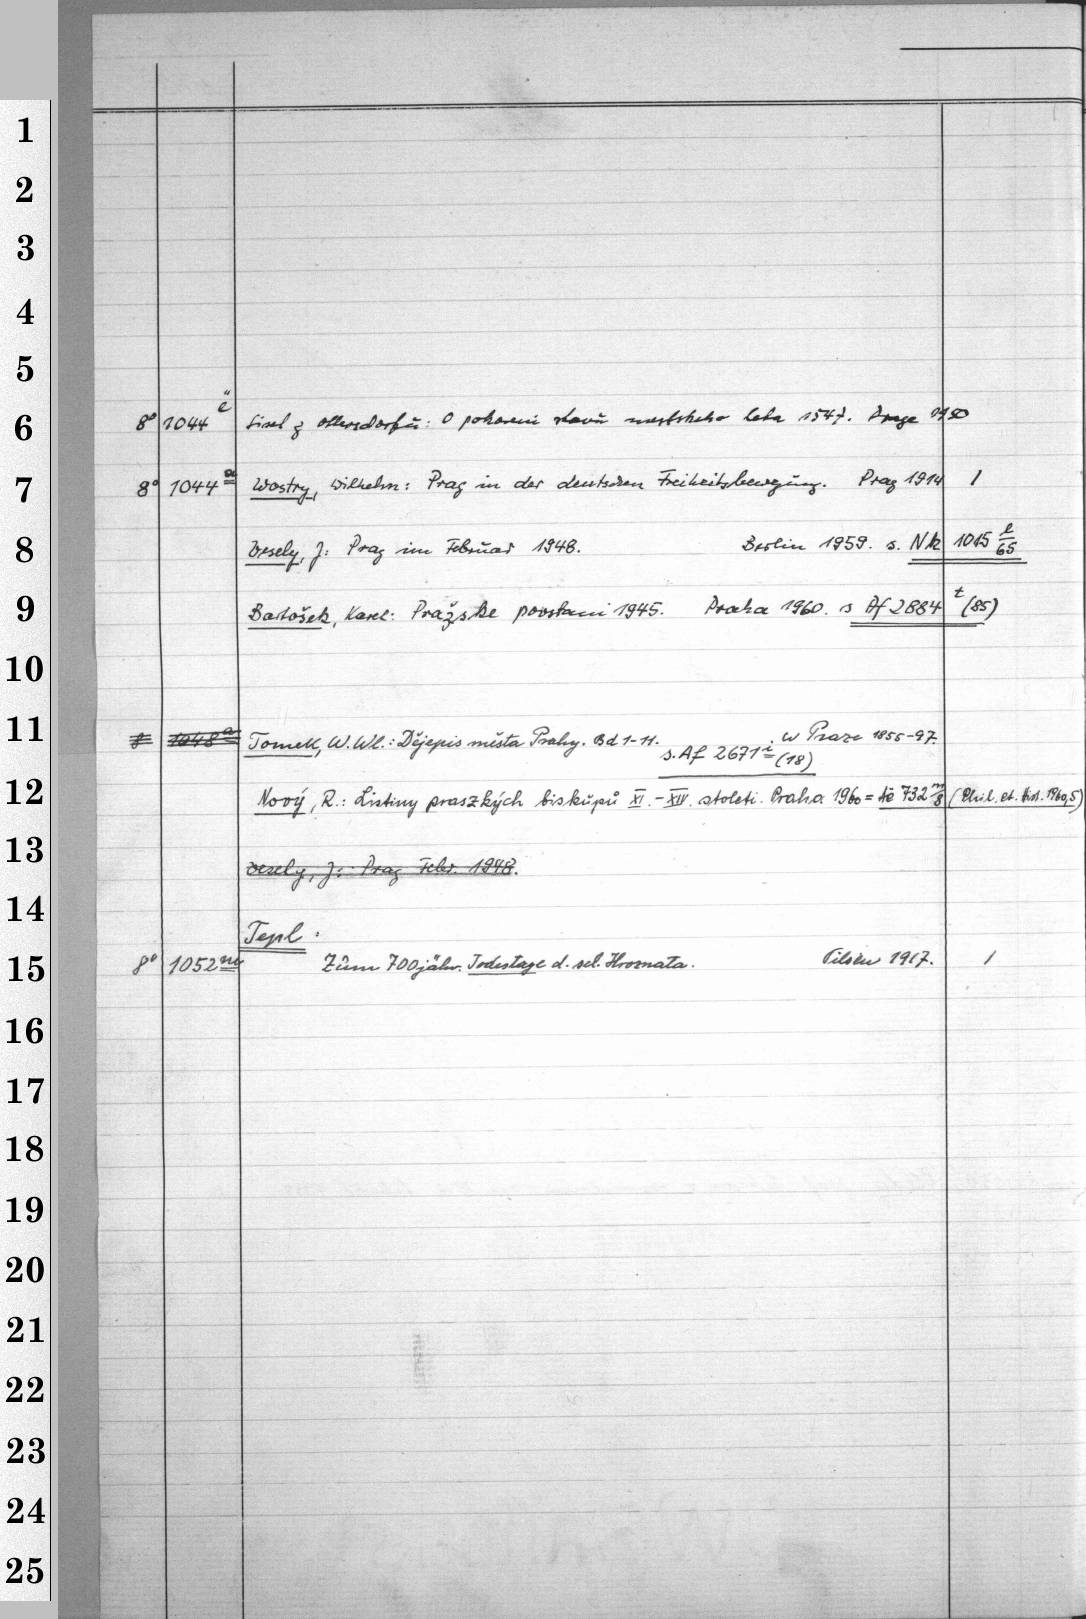 1
2
3
4
5
6 8° 1044 ë Sixt z Ottersdorfu: O pokoreni stavu mestskeho leta 1547. Praga 1950
7 8° 1044 a Wostry, Wilhelm: Prag in der deutschen Freiheitsbewegung. Prag 1914 1
8 Vesely, J: Prag im Februar 1948. Berlin 1959. s. Nk 1015 l/65
9 Bartošek, Karel: Pražske povstani 1945. Praha 1960. s Af 2884 t (85)
10
11 8 1048 a Tomek, W. Wl.: Dějepis města Prahy. Bd 1-11. w Praze 1855-97.
s. Af 2671 i (18)
12 Nový, R.: Listiny praszkých biskupů XI. - XIV. stoleti. Praha. 1960 = 732 m/8 (Phil. et. hist. 1960,5)
13 Vesely, J: Prag Febr. 1948.
14 Tepl.
15 8° 1052 m Zum 700jähr. Todestage d. sel. Hroznata. Pilsen 1917. 1
16
17
18
19
20
21
22
23
24
25